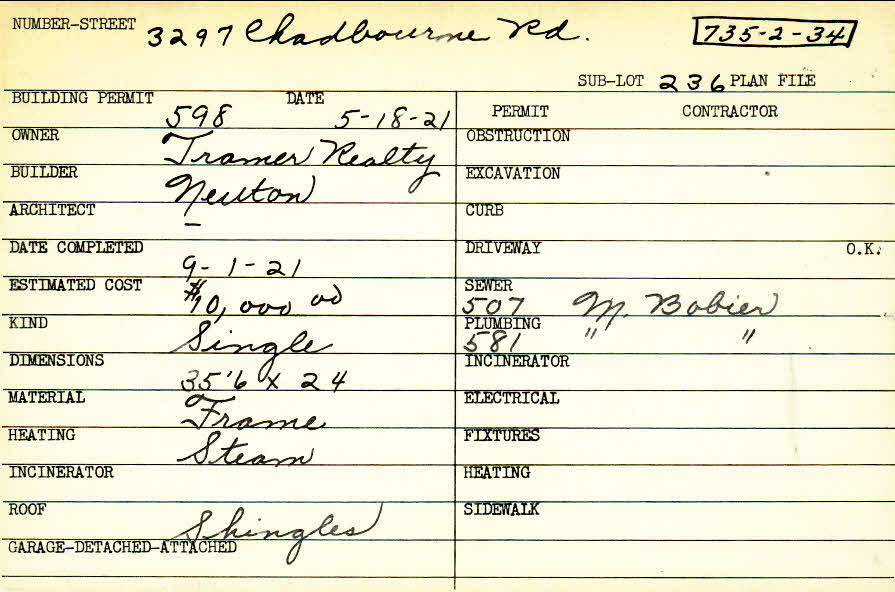 NUMBER-STREET 3297 Chadbourne Rd. 735-2-34
SUB-LOT 236 PLAN FILE
BUILDING PERMIT 598 DATE 5-18-21
PERMIT CONTRACTOR
OWNER Tramer Realty
OBSTRUCTION
BUILDER Newton
EXCAVATION
ARCHITECT –
CURB
DATE COMPLETED 9-1-21
DRIVEWAY O.K.
ESTIMATED COST $10,000 00
SEWER 507 M. Bobier
KIND Single
PLUMBING 581 " "
DIMENSIONS 35'6 x 24
INCINERATOR
MATERIAL Frame
ELECTRICAL
HEATING Steam
FIXTURES
INCINERATOR
HEATING
ROOF Shingles
SIDEWALK
GARAGE-DETACHED-ATTACHED